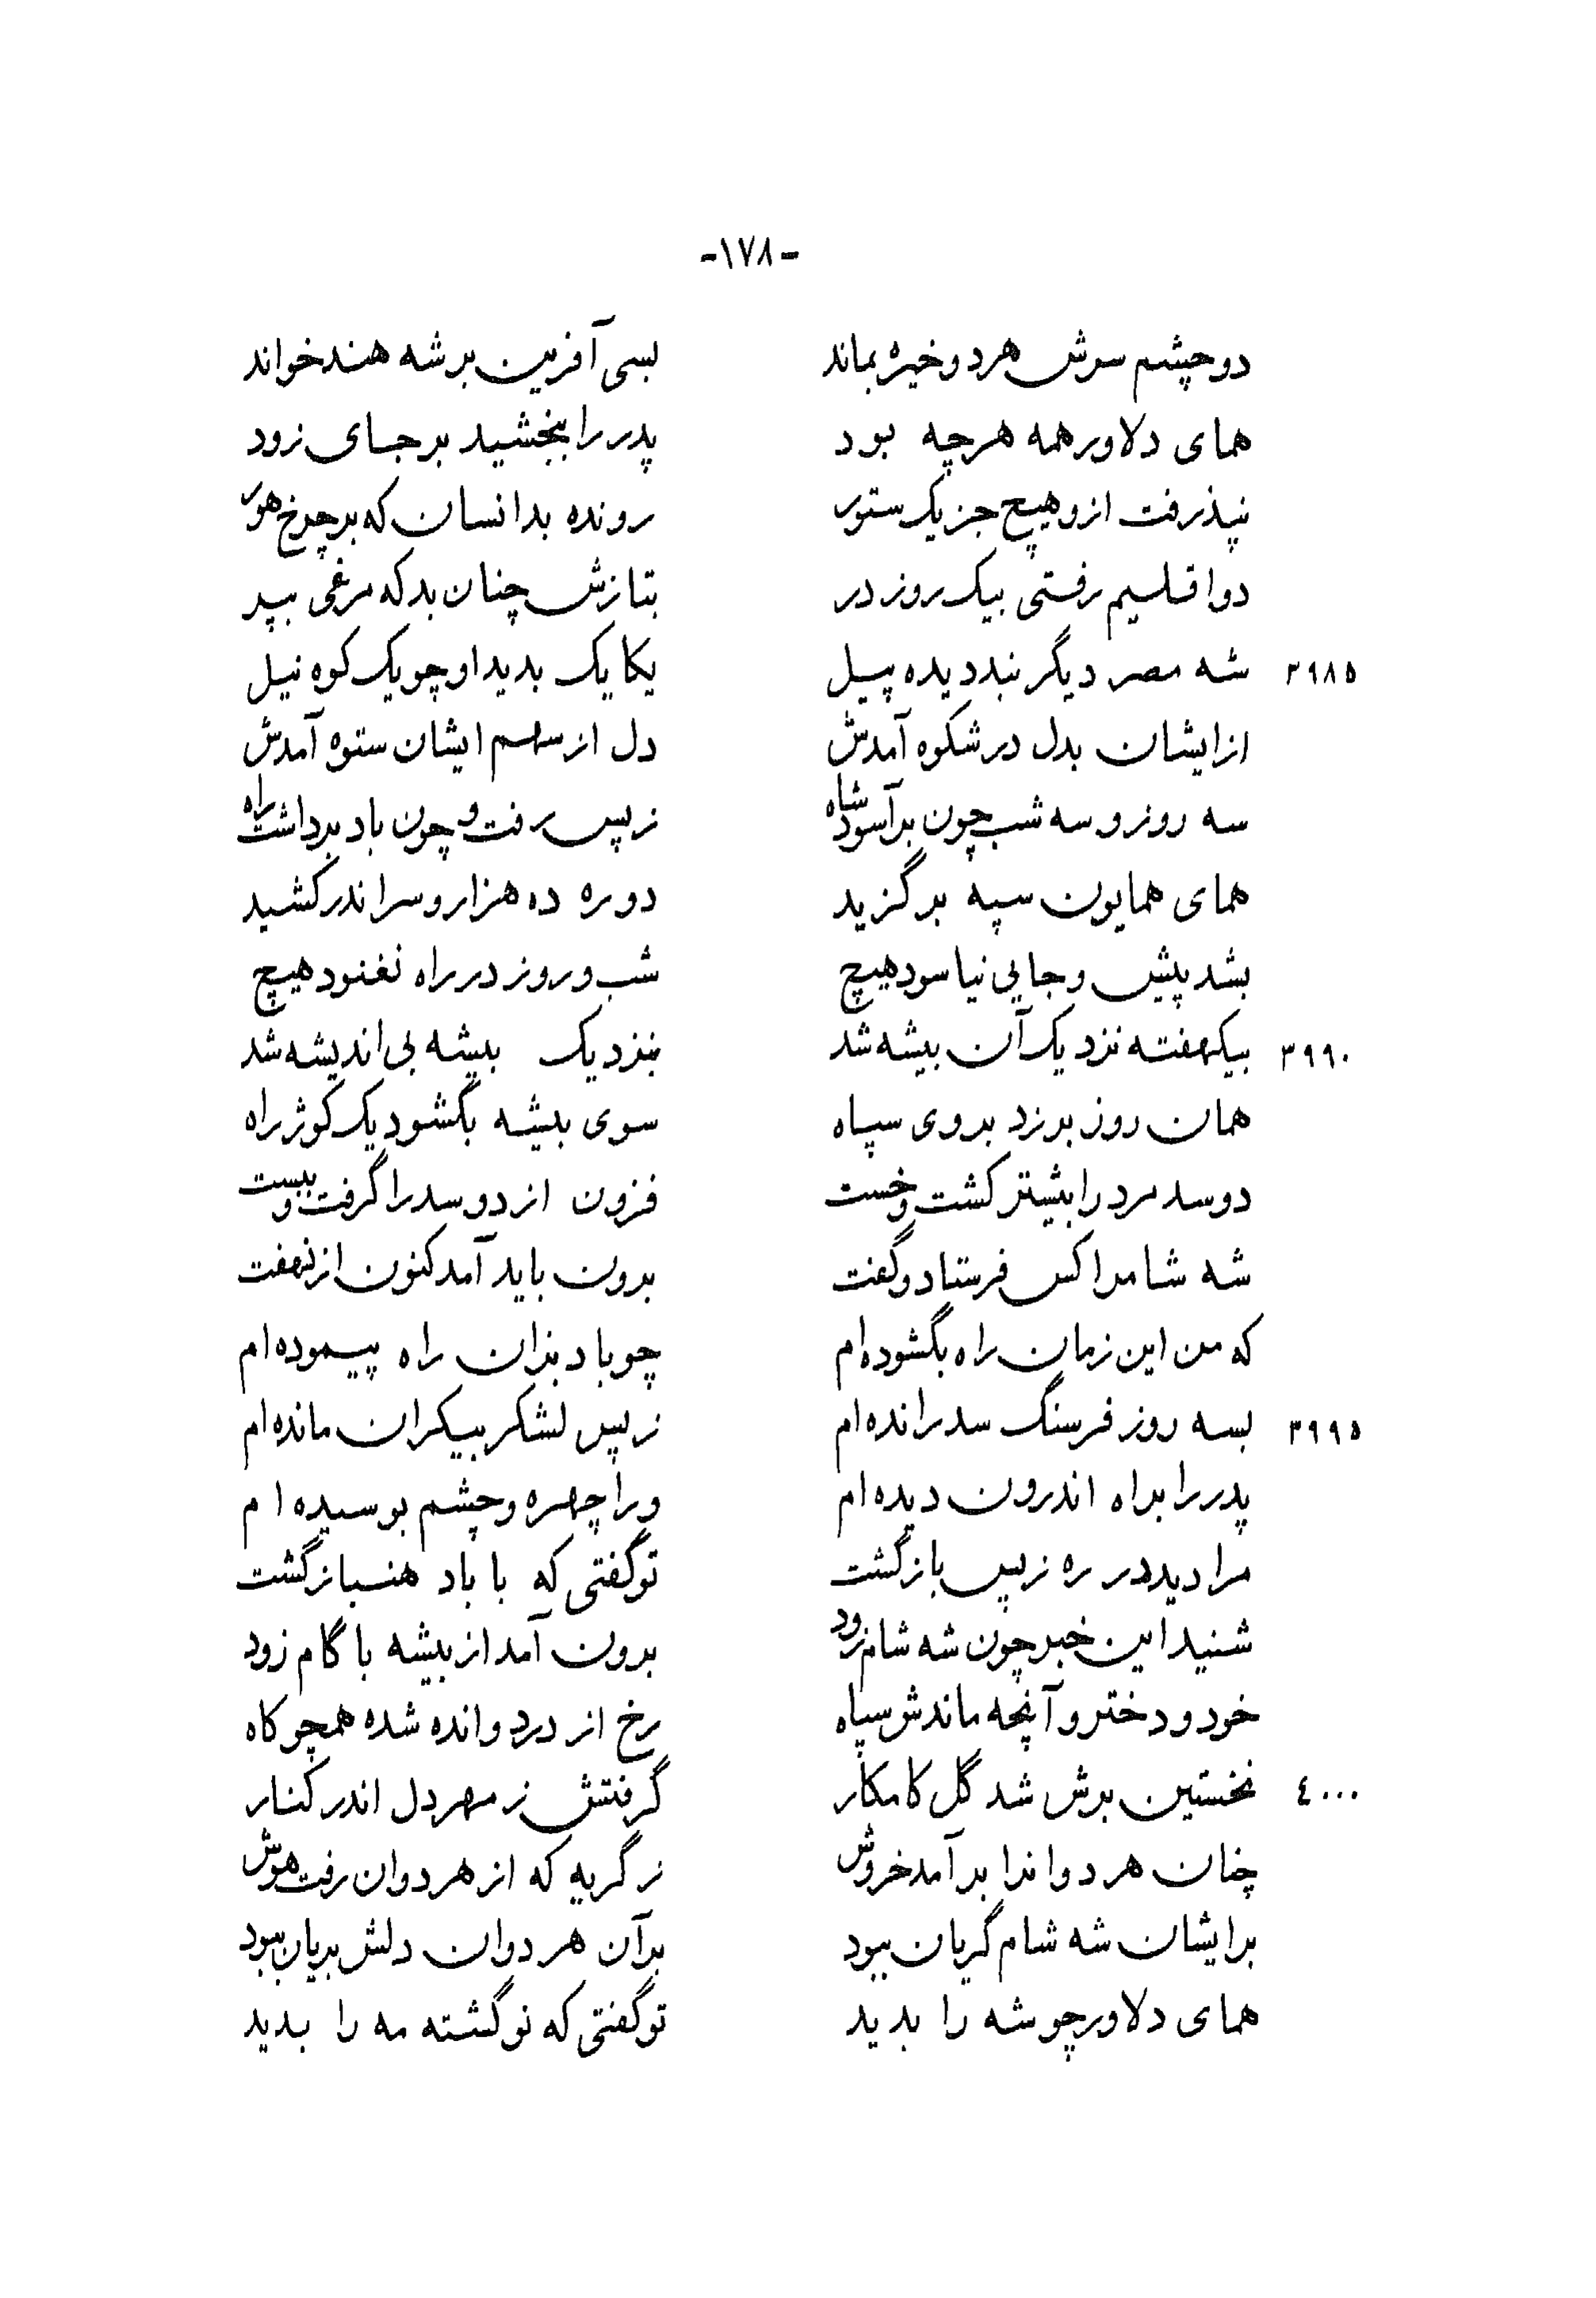 -۱۷۸-
دو چشم سرش هر دو خیره بماند بسی آفرین بر شه هند خواند
همای دلاور همه هرچه بود پدر را ببخشید بر جای زود
نپذرفت ازو هیچ جز یک ستور رونده بدانسان که بر چرخ هور
دو اقلیم رفتی بیک روز در بتازش چنان بد که مرغی بپر
۳۹۸۵ شه مصر دیگر نبد دیده پیل یکایک بدید او چو یک کوه نیل
از ایشان بدل در شکوه آمدش دل از سهم ایشان ستوه آمدش
سه روز و سه شب چون برآسود شاه ز پس رفت و چون باد برداشت راه
همای همایون سپه برگزید دو ره ده هزار و سر اندر کشید
بشد پیش و جایی نیاسود هیچ شب و روز در راه نغنود هیچ
۳۹۹۰ بیکهفته نزدیک آن بیشه شد بنزدیک بیشه بی اندیشه شد
همان روز برزد بروی سپاه سوی بیشه بگشود یک کوژ راه
دو سد مرد را بیشتر کشت و خست فزون از دو سد را گرفت و ببست
شه شامرا کس فرستاد و گفت برون باید آمد کنون از نهفت
که من این زمان راه بگشوده‌ام چو باد بزان راه پیموده‌ام
۳۹۹۵ بسه روز فرسنگ سد رانده‌ام ز پس لشکر بیکران مانده‌ام
پدر را براه اندرون دیده‌ام ورا چهره و چشم بوسیده‌ام
مرا دید در ره ز پس بازگشت تو گفتی که با باد هنباز گشت
شنید این خبر چون شه شام زود برون آمد از بیشه با گام زود
خود و دختر و آنچه ماندش سپاه رخ از درد و انده شده همچو کاه
۴۰۰۰ نخستین برش شد گل کامکار گرفتش ز مهر دل اندر کنار
چنان هر دوانرا برآمد خروش ز گریه که از هر دوان رفت هوش
بر ایشان شه شام گریان ببود بر آن هر دوان دلش بریان ببود
همای دلاور چو شه را بدید تو گفتی که نو گشته مه را بدید